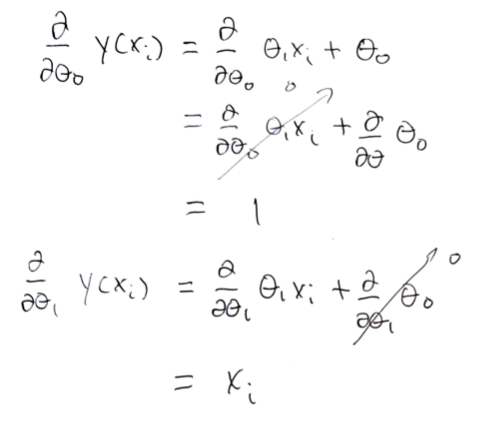 ∂/∂θ₀ y(xᵢ) = ∂/∂θ₀ θ₁xᵢ + θ₀
= ∂/∂θ₀ θ₁xᵢ → 0 + ∂/∂θ θ₀
= 1
∂/∂θ₁ y(xᵢ) = ∂/∂θ₁ θ₁xᵢ + ∂/∂θ₁ θ₀ → 0
= xᵢ